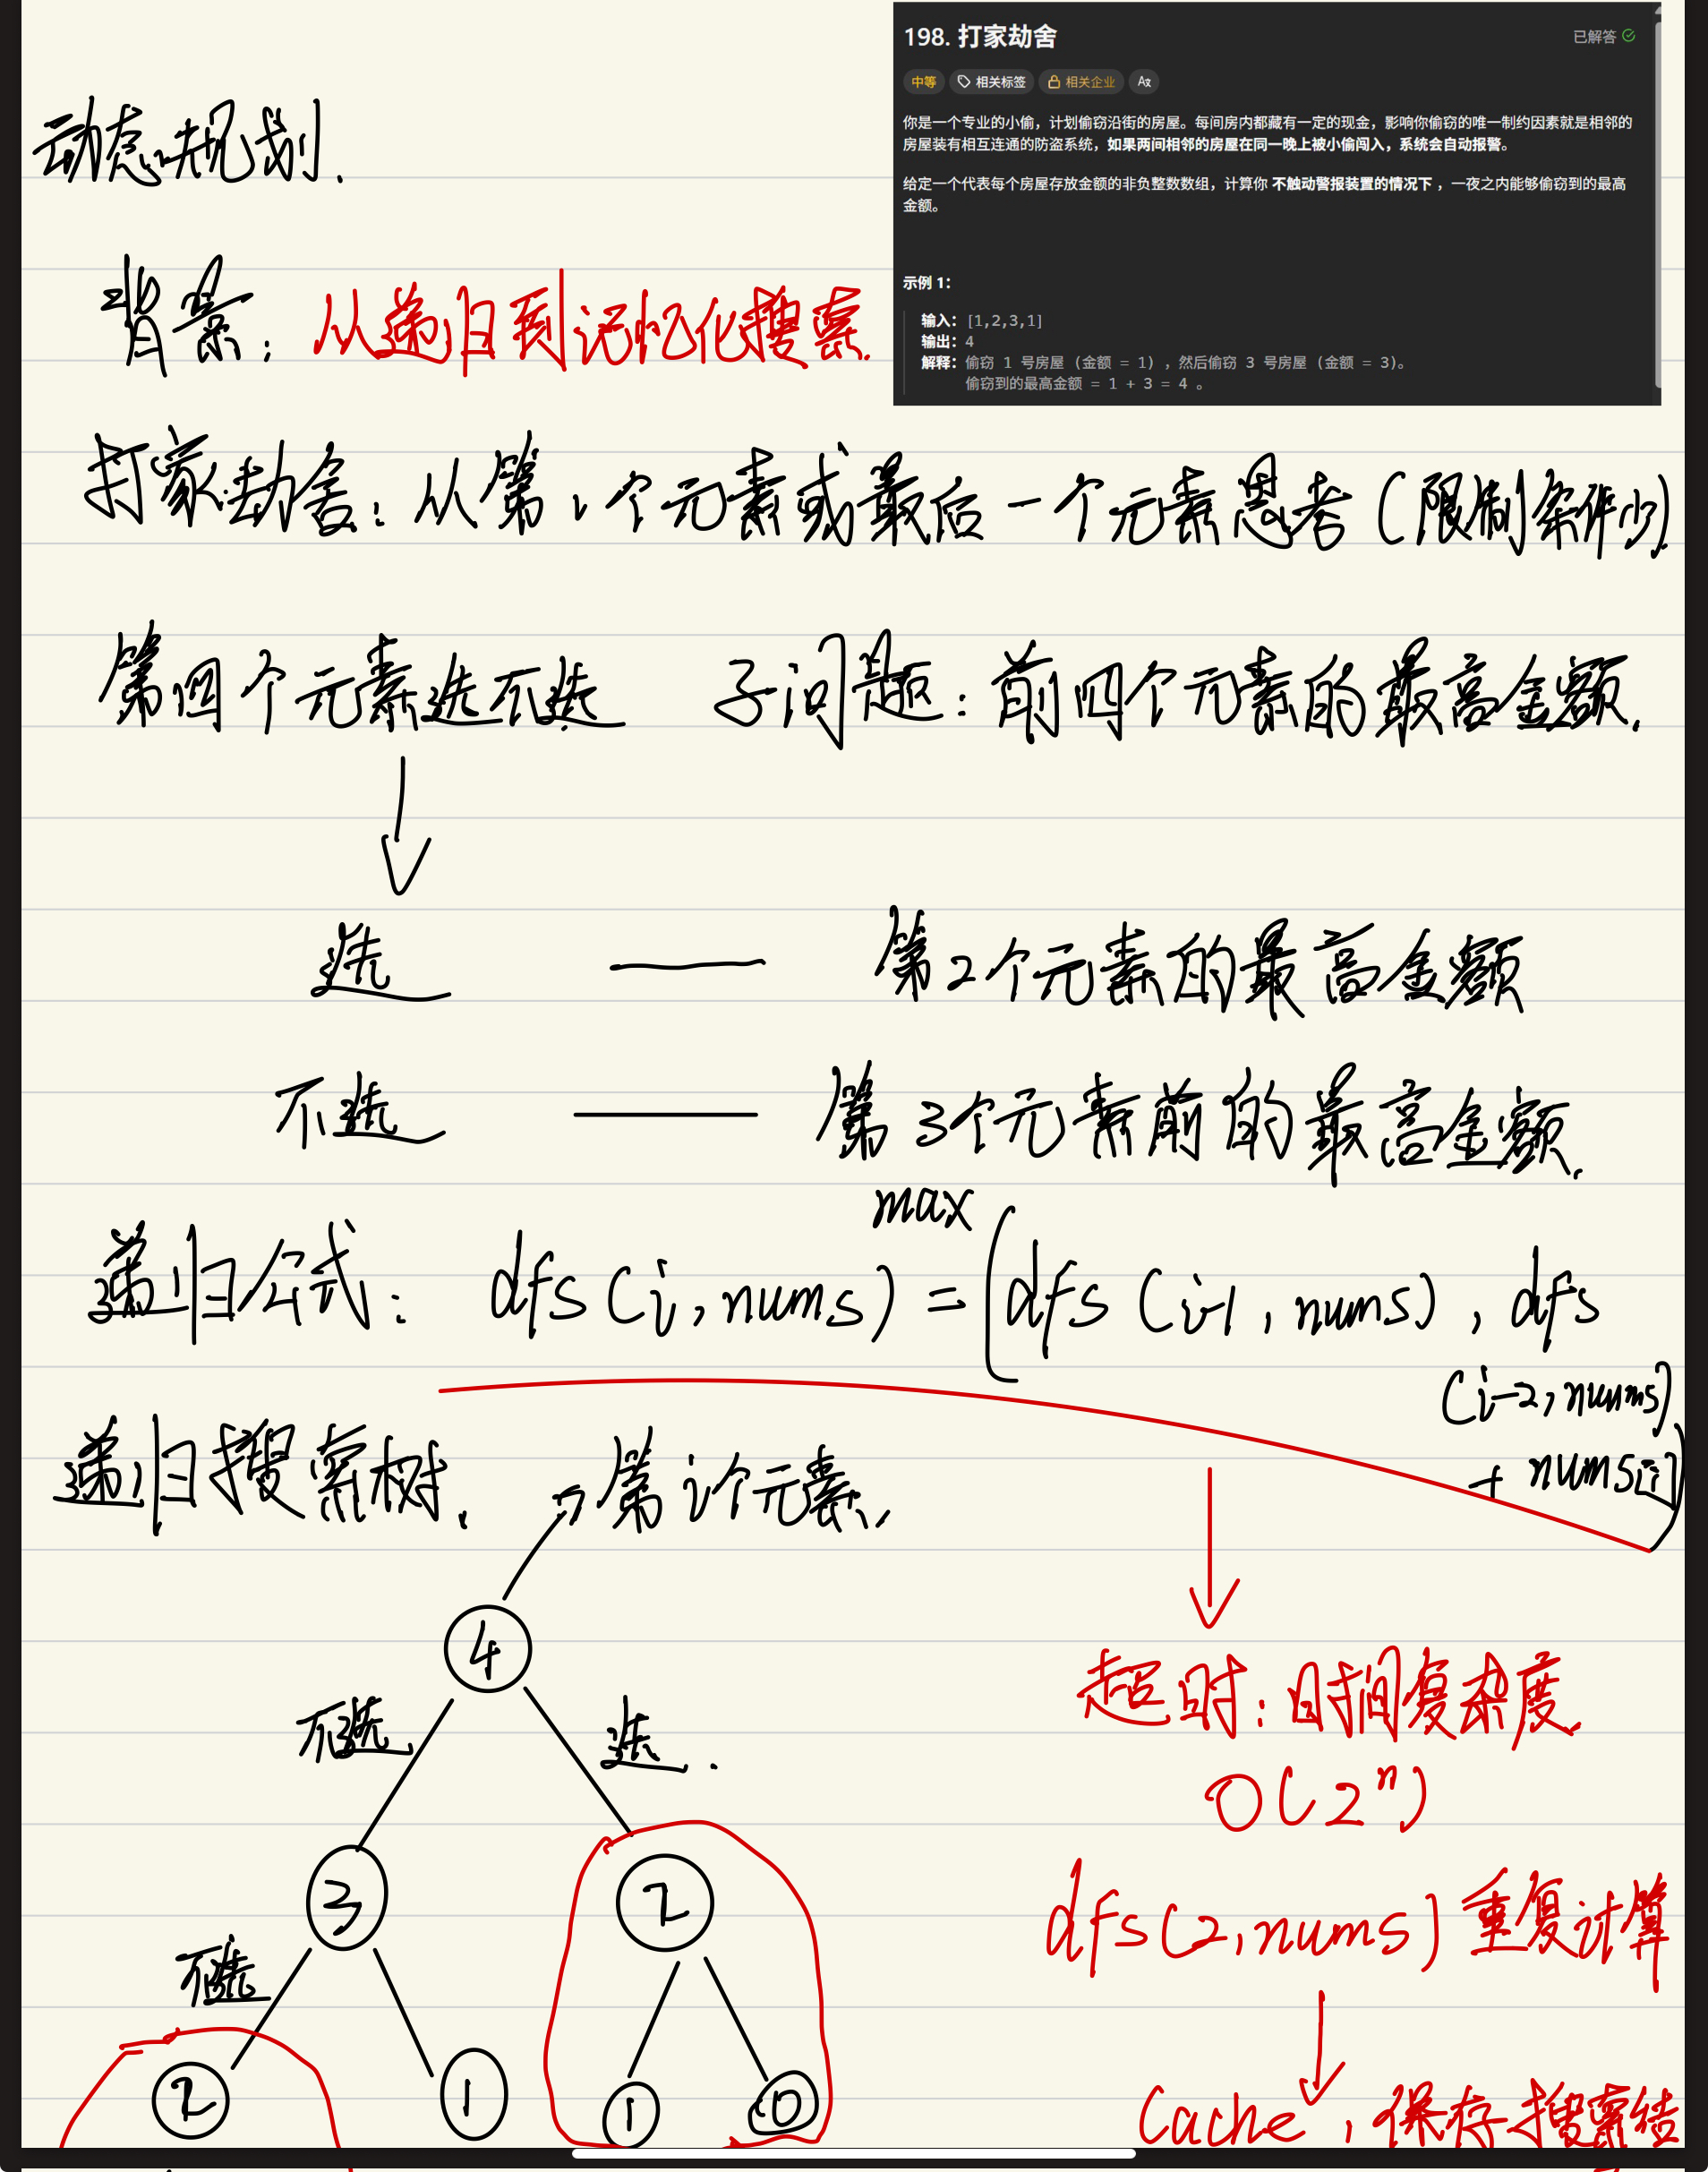 198. 打家劫舍
已解答
中等 相关标签 相关企业
你是一个专业的小偷，计划偷窃沿街的房屋。每间房内都藏有一定的现金，影响你偷窃的唯一制约因素就是相邻的
房屋装有相互连通的防盗系统，如果两间相邻的房屋在同一晚上被小偷闯入，系统会自动报警。
给定一个代表每个房屋存放金额的非负整数数组，计算你 不触动警报装置的情况下 ，一夜之内能够偷窃到的最高
金额。
示例 1：
输入：[1,2,3,1]
输出：4
解释：偷窃 1 号房屋 (金额 = 1) ，然后偷窃 3 号房屋 (金额 = 3)。
偷窃到的最高金额 = 1 + 3 = 4 。
动态规划.
背景: 从递归到记忆化搜索.
打家劫舍: 从第1个元素或最后一个元素思考 (限制条件少)
第四个元素选不选 子问题: 前四个元素的最高金额.
选 — 第2个元素的最高金额
不选 — 第3个元素前的最高金额.
max
递归公式: dfs (i, nums) = (dfs (i-1, nums), dfs
(i-2, nums)
+ nums[i])
递归搜索树. 第i个元素.
4
不选 选.
超时: 时间复杂度
O(2^n)
3 2
dfs(2, nums) 重复计算
不选
2 1 1 0
Cache, 保存搜索结